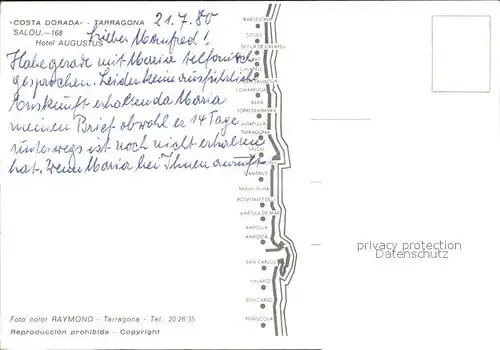 "COSTA DORADA" - TARRAGONA
SALOU.-168
Hotel AUGUSTUS
21.7.80
Lieber Manfred!
Habe gerade mit Maria telfonisch
gesprochen. Leider keine ausführliche
Auskunft erhalten da Maria
meinen Brief obwohl er 14 Tage
unterwegs ist noch nicht erhalten
hat. Wenn Maria bei Ihnen anruft
BARCELONA
SITGES
CALAFELL
COMARRUGA
BARA
TORREDEMBARRA
ALTAFULLA
TARRAGONA
SALOU
CAMBRILS
HOSPITALET
AMETLLA DE MAR
AMPOLLA
AMPOSTA
SAN CARLOS
VINAROZ
BENICARLO
PEÑISCOLA
privacy protection
Datenschutz
Foto color RAYMOND - Tarragona - Tel. 20 26 35
Reproducción prohibida - Copyright